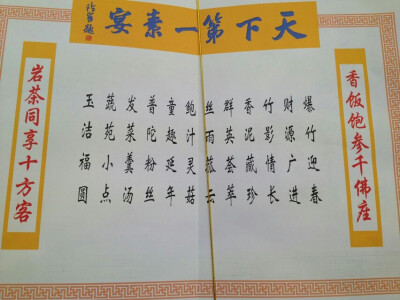 天下第一素宴
香饭饱参千佛座
爆竹迎春
财源广进
竹影情长
香泥藏珍
群英荟萃
丝雨菰云
鲍汁灵菇
童趣延年
普陀粉丝
发菜羹汤
蔬苑小点
玉洁福圆
岩茶同享十方客